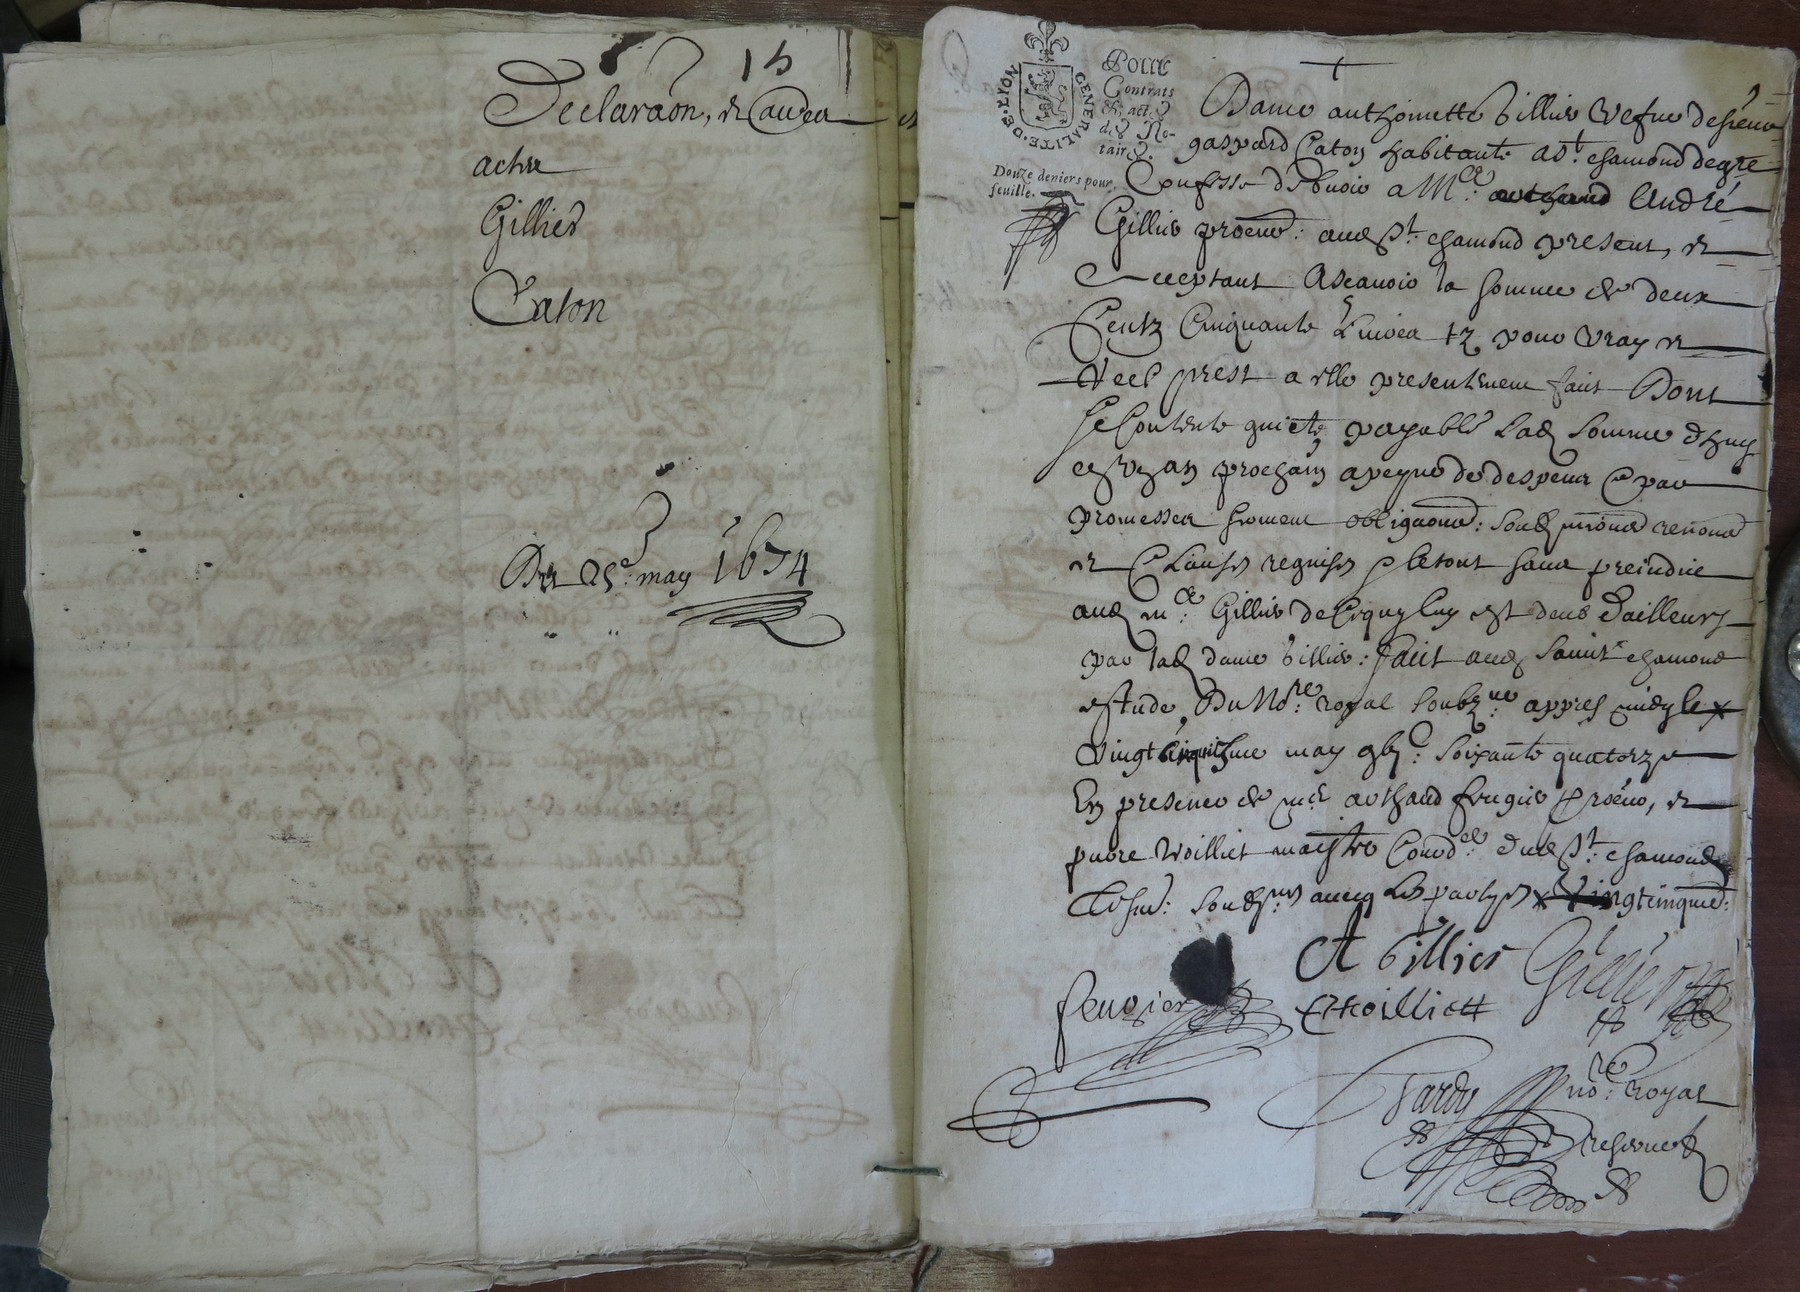 15
Declaraōn, et
acte
Gillier
Caton
Du 25e. may 1674
GENERALITE·DE·LYON
Pour
Contrats
& actes
des No-
taires.
Douze deniers pour
feuille.
Dame anthoinette Gillier vefve de sieur
gaspard Caton habitante a St. chamond de gré
Confesse debvoir a Me. André
Gillier procur. aud St. chamond present, et
acceptant Ascavoir la somme de deux
Centz Cinquante Livres tz pour vray et
reel prest a elle presentement fait Dont
se Contente quicte payable lad somme d'huy
en Vn an prochain a peyne de despens Par
promesses serment obligaons. soubmissions renons
et Clauses requises Et le tout sans preiudice
aud Me. Gillier de Ce quy luy est deub d'ailleurs
par lad dame Gillier: fait aud Sainct chamond
estude Du Nore. royal soubzne. appres midy le x
Vingt cinquiesme may gbc. soixante quatorze
En presence de Me arthaud procur, et
pierre Woilliet maistre Cord. dud St. chamond
soubznes avecq les partyes x Vingtcinquie.
A Gillier
Gillier
Woilliett
Tardy
nore. royal